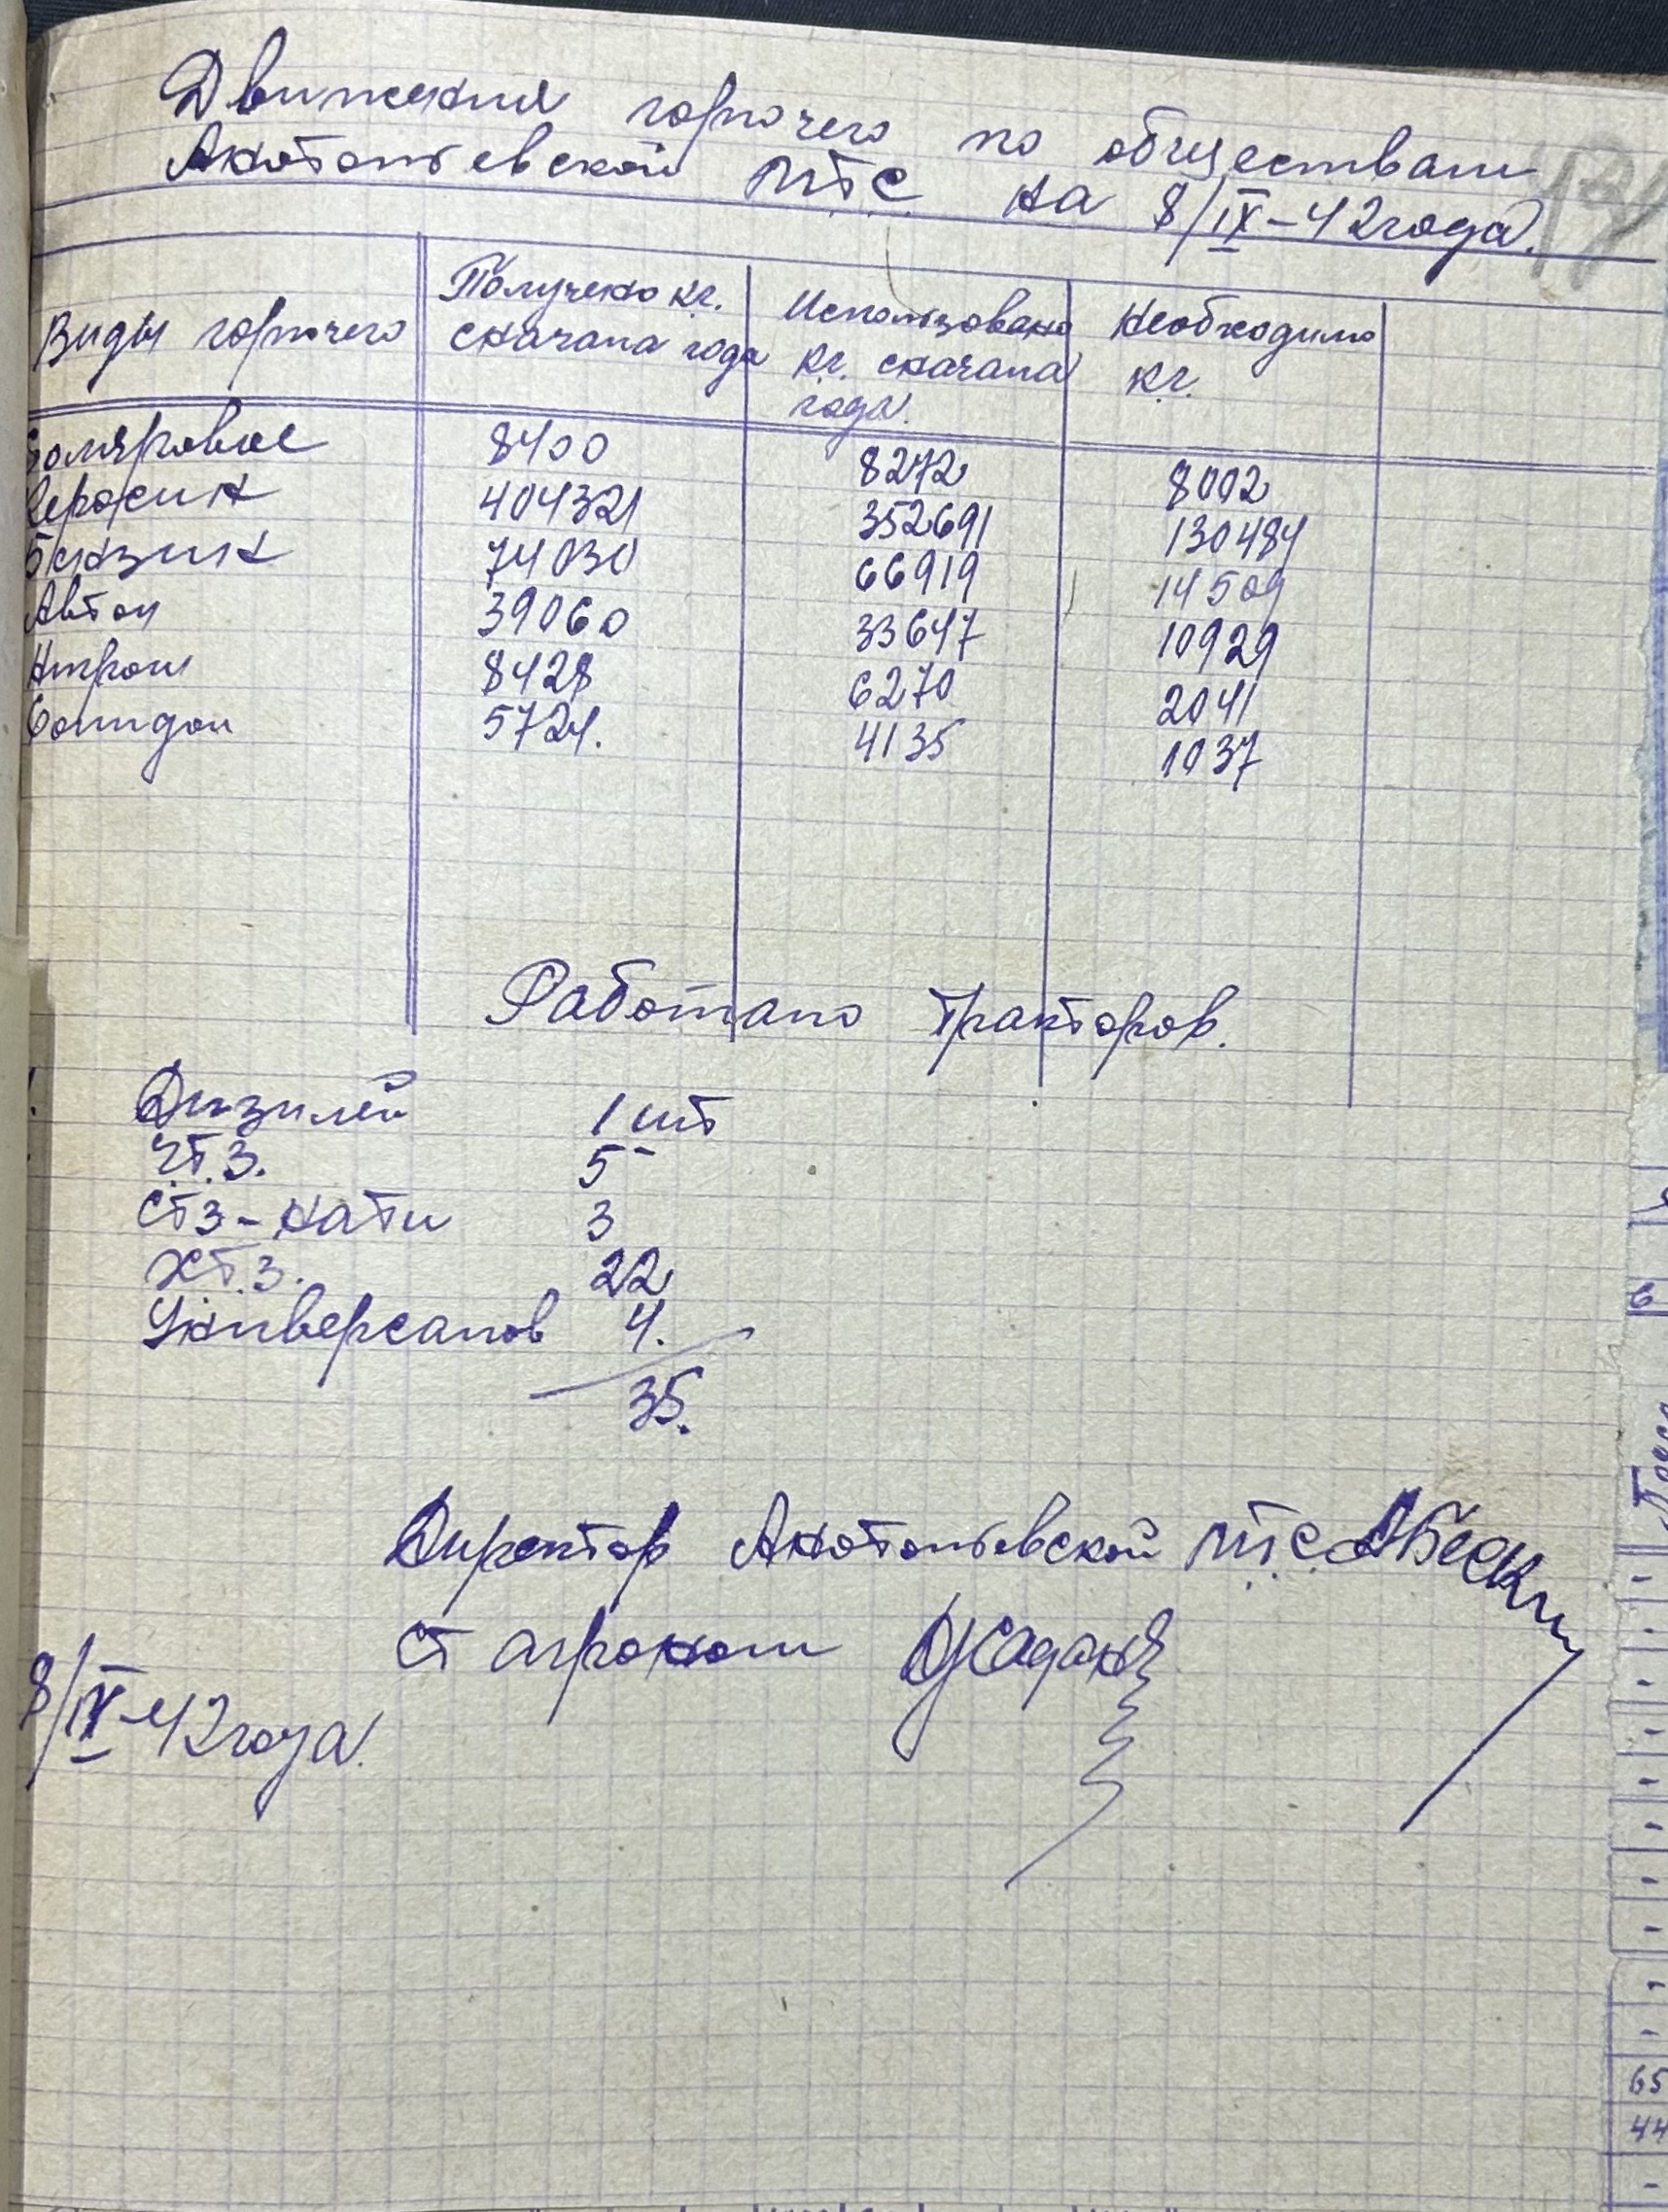 Движения горючего по обществам
Анатольевской МТС на 8/IX-42 года.
Виды горючего Получено кг. сначала года Использовано кг. сначала года Необходимо кг.
Соляровое 8400 8272 8002
Керосин 404321 352691 130484
Бензин 74030 66919 14509
Автол 39060 33647 10929
Нигрол 8428 6270 2041
Солидол 5724. 4135 1037
Работало тракторов.
Дизилей 1 шт
ЧТ.З. 5
СТЗ-Нати 3
ХТ.З. 22
Универсалов 4.
35.
Директор Анатольевской МТС
Ст агроном
8/IX-42 года.
6
65
44